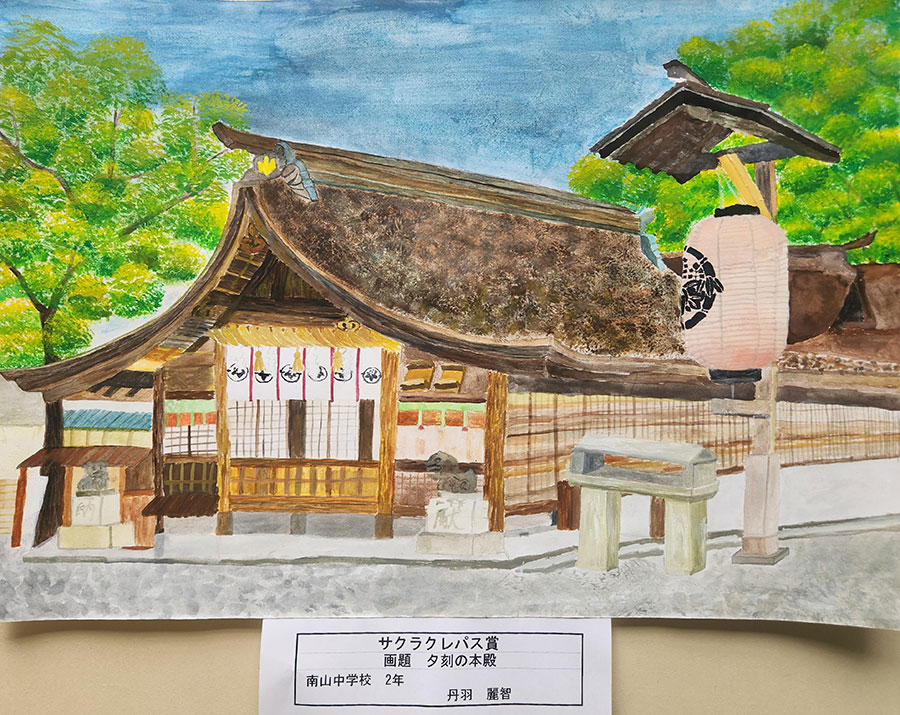 納
献
サクラクレパス賞
画題 夕刻の本殿
南山中学校 2年
丹羽 麗智